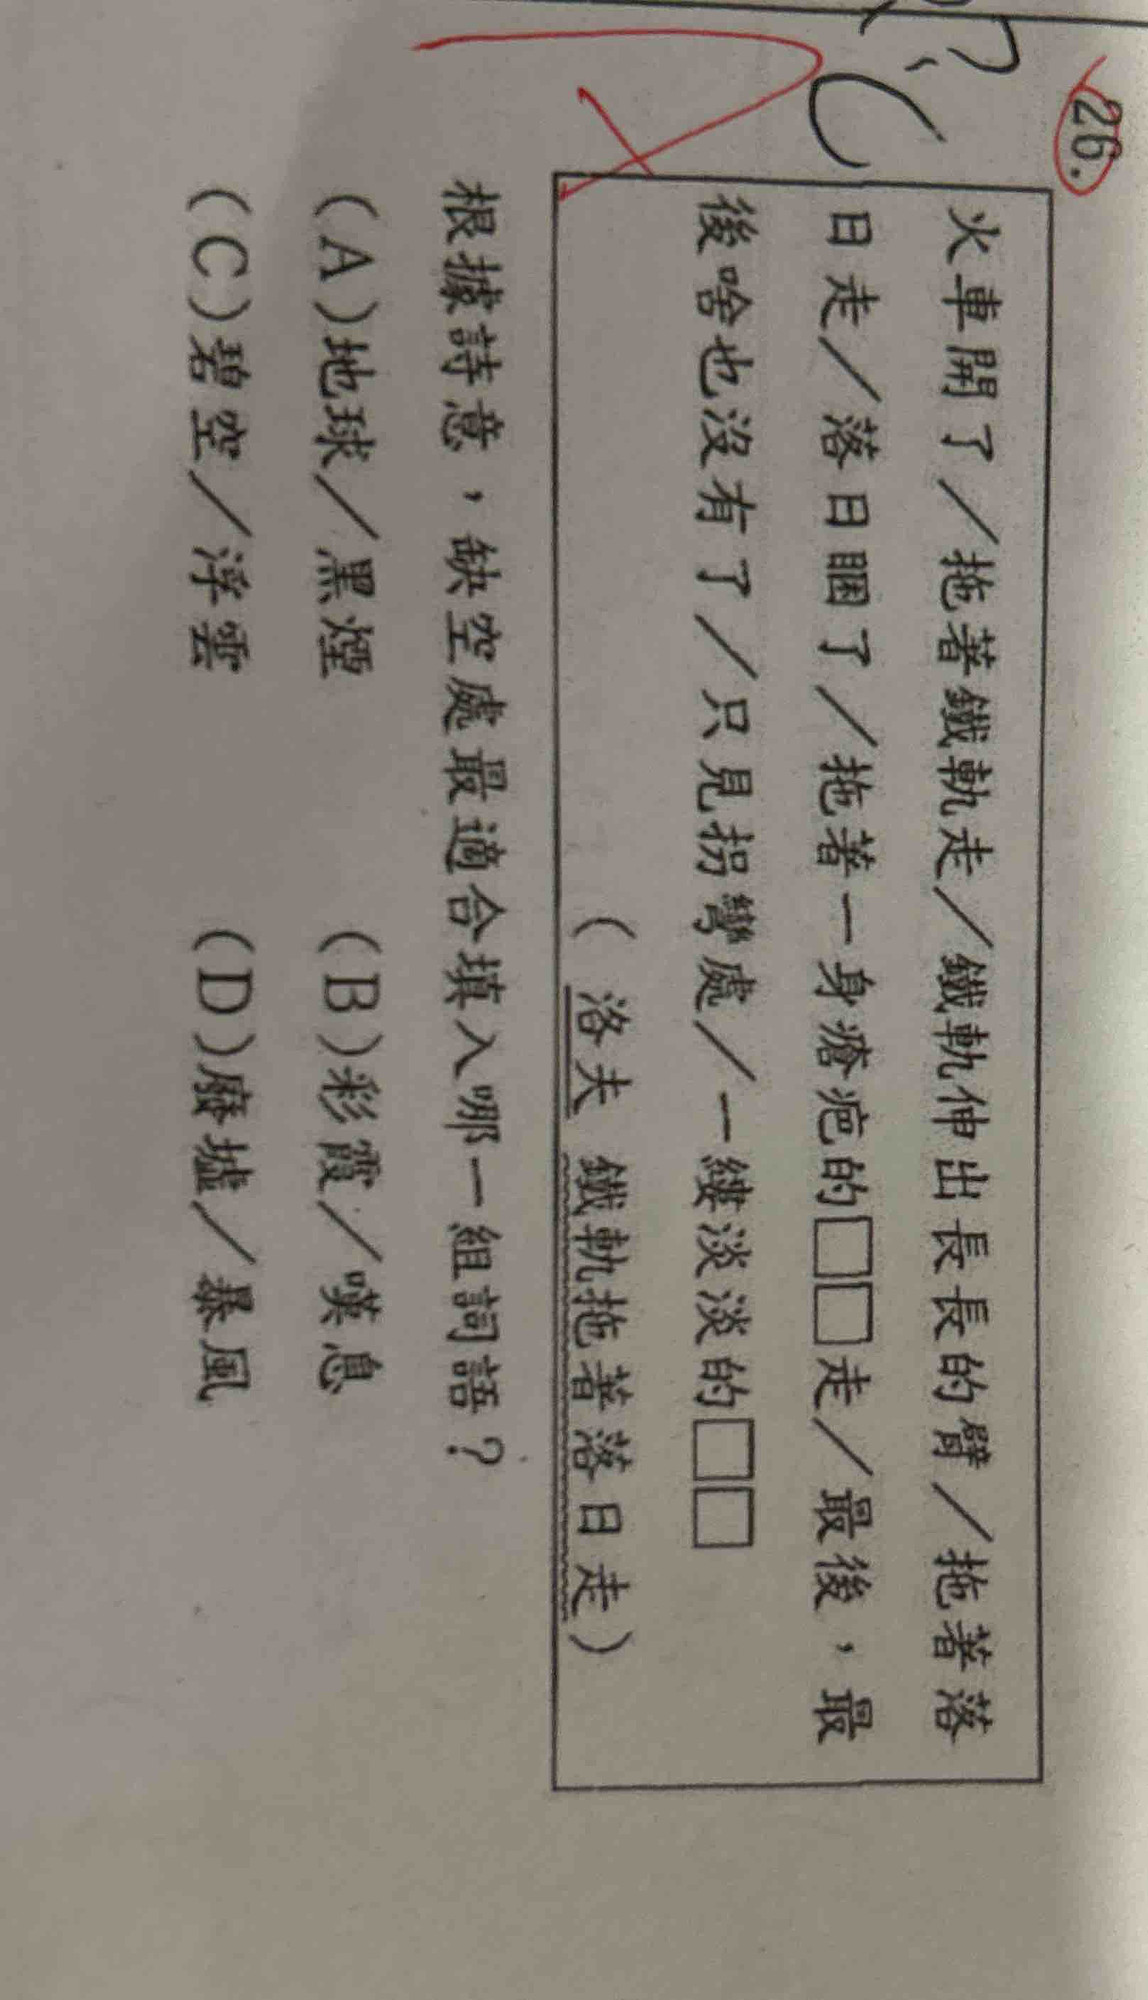 26.
火車開了／拖著鐵軌走／鐵軌伸出長長的臂／拖著落
日走／落日睏了／拖著一身瘡疤的□□走／最後，最
後啥也沒有了／只見拐彎處／一縷淡淡的□□
（洛夫 鐵軌拖著落日走）
根據詩意，缺空處最適合填入哪一組詞語？
（A）地球／黑煙 （B）彩霞／嘆息
（C）碧空／浮雲 （D）廢墟／暴風